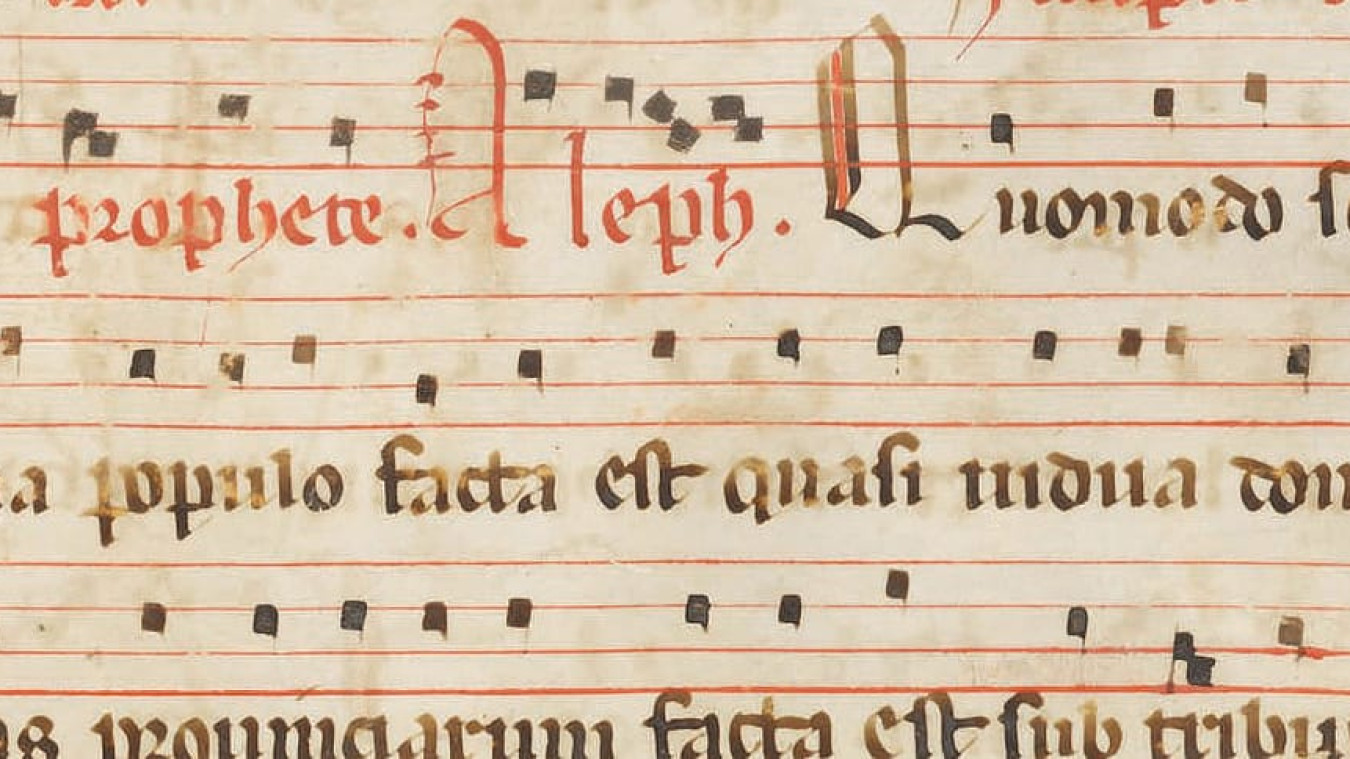 prophete. Aleph. Quomodo
populo facta est quasi uidua
prouinciarum facta est sub